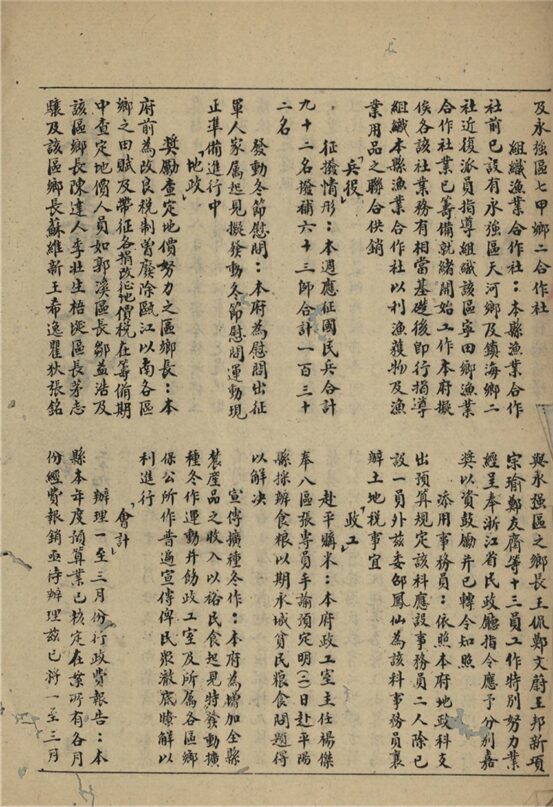 及永強區七甲鄉二合作社
組織漁業合作社：本縣漁業合作
社前已設有永強區天河鄉及鎮海鄉二
社近復派員指導組織該區寕田鄉漁業
合作社業已籌備就緒開始工作本府擬
俟各該社業務有相當基礎後即行指導
組織本縣漁業合作社以利漁獲物及漁
業用品之聯合供銷
「兵役」
征撥情形：本週應征國民兵合計
九十二名撥補六十三師合計一百三十
二名
發動冬節慰問：本府為慰問出征
軍人家屬起見擬發動冬節慰問運動現
正準備進行中
「地政」
奬勵查定地價努力之區鄉長：本
府前為改良税制曾廢除甌江以南各區
鄉之田賦及帶征各捐改征地價税在籌備期
中查定地價人員如郭溪區長鄒益浩及
該區鄉長陳達人李壯生梧埏區長茅志
驤及該區鄉長蘇維新王希逸瞿狄張銘
與永強區之鄉長王佩鄭文蔚王邦新項
宗瑜鄭友齊等十三員工作特別努力業
經呈奉浙江省民政廳指令應予分别嘉
奬以資鼓勵并已轉令知照
添用事務員：依照本府地政科支
出預算規定該科應設事務員二人除已
設一員外茲委邵鳳仙為該科事務員襄
辦土地税事宜
「政工」
赴平購米：本府政工室主任楊傑
奉八區張專員手諭須定明(二)日赴平陽
縣採辦食粮以期永城貧民粮食問題得
以解决
宣傳擴種冬作：本府為增加全縣
農産品之收入以裕民食起見特發動擴
種冬作運動并飭政工室及所屬各區鄉
保公所作普遍宣傳俾民衆澈底瞭解以
利進行
「會計」
辦理一至三月份行政費報告：本
縣本年度預算業已核定在案所有各月
份經費報銷亟待辦理茲已將一至三月